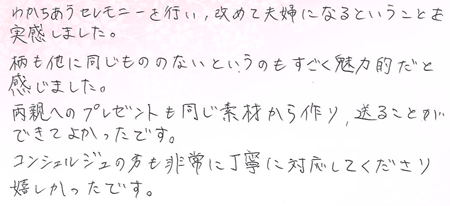 わかちあうセレモニーを行い,改めて夫婦になるということを
実感しました。
柄も他に同じもののないというのもすごく魅力的だと
感じました。
両親へのプレゼントも同じ素材から作り,送ることが
できてよかったです。
コンシェルジュの方も非常に丁寧に対応してくださり
嬉しかったです。